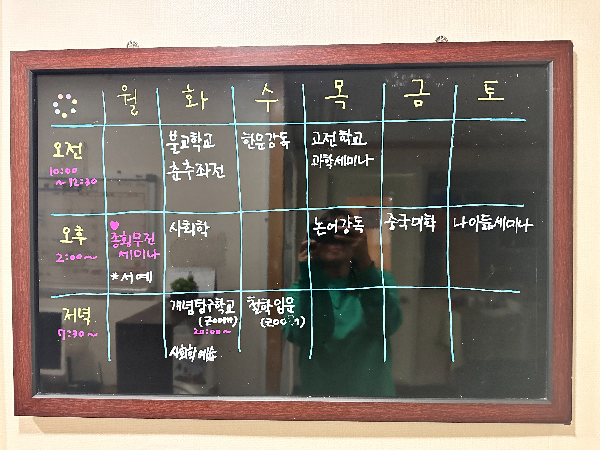 월 화 수 목 금 토
오전 불교학교 한문강독 고전학교
10:00 춘추좌전 과학세미나
~12:30
오후 사회학 논어강독 중국어학 나이듦세미나
2:00~ 종횡무진
세미나
*서예
저녁 개념탐구학교 철학입문
7:30~ (zoom) (zoom)
20:00~
사회학예습